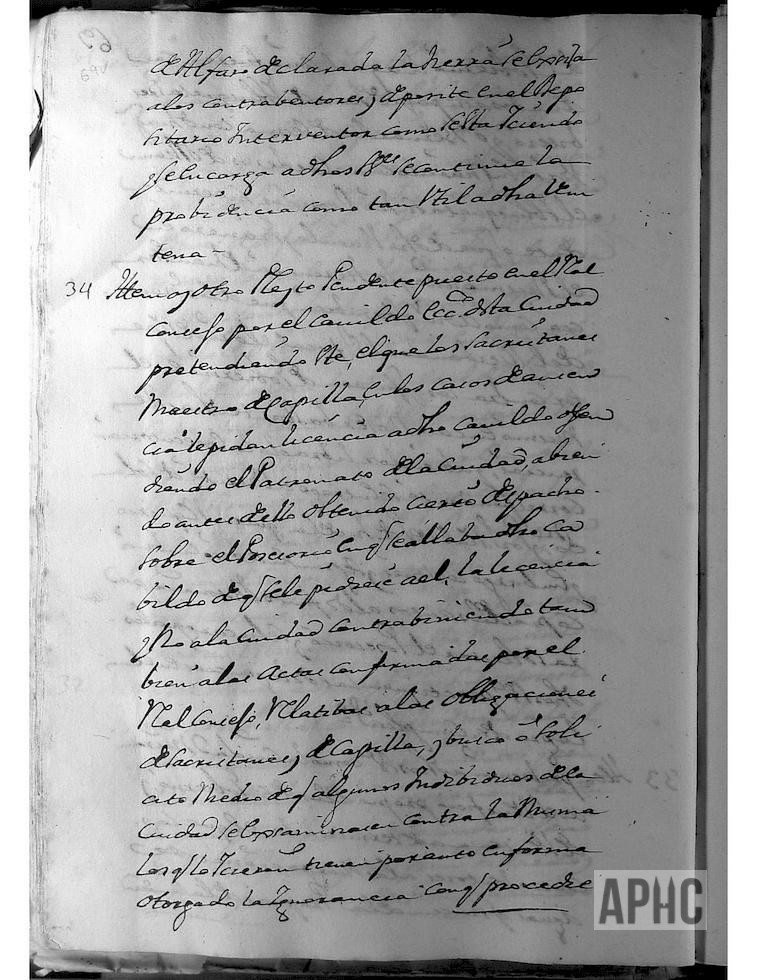 69
69v
de Alfaro declarada la tierra se exsiba
a los contrabentores, y deposite en el Depo
sitario Interventor como se esta Iciendo
y se encarga a dhos Sres se continue la
probidencia como tan Vtil a dha Vein
tena-
34 Ittem ay otro Pleyto Pendente puesto en el Ral
Consejo por el Cauildo Ecco. desta Ciudad
pretendiendo Este, el que los Sacristanes
Maestro de Capilla, en los casos de ausen
cia le pidan licencia a dho Cauildo ofen
diendo el Patronato de la Ciudad, abien
do antes dello obtenido cierto despacho
sobre el Posesorio en q se allaba dho Ca
bildo de q se le pidiese a el, la licencia
y No a la Ciudad contrabiniendo tam
bien a las Actas confirmadas por el
Ral Consejo, Relatibas a las obligaciones
de Sacristanes, y de Capilla, y busco o Soli
cito Medio de q algunos Indibiduos de la
Ciudad se exsaminasen contra la Misma
los q lo Icieron tienen por auto en forma
otorgado la Ignorancia con q procedie
APHC